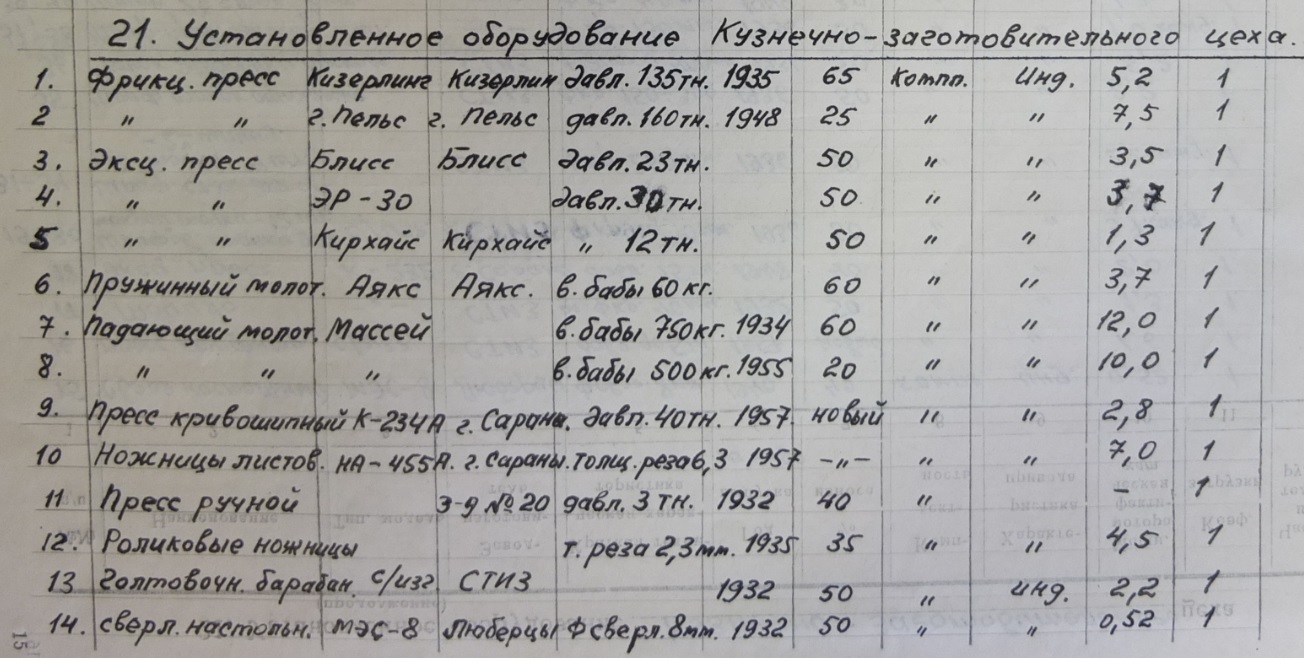 21. Установленное оборудование Кузнечно-заготовительного цеха.
1. Фрикц. пресс Кизерлинг Кизерлин давл. 135тн. 1935 65 Компл. Инд. 5,2 1
2 " " г. Пельс г. Пельс давл. 160тн. 1948 25 " " 7,5 1
3. Эксц. пресс Блисс Блисс давл. 23тн. 50 " " 3,5 1
4. " " ЭР-30 давл. 30тн. 50 " " 3,7 1
5 " " Кирхайс Кирхайс " 12тн. 50 " " 1,3 1
6. Пружинный молот. Аякс Аякс. в. бабы 60кг. 60 " " 3,7 1
7. Падающий молот. Массей в. бабы 750кг. 1934 60 " " 12,0 1
8. " " " в. бабы 500кг. 1955 20 " " 10,0 1
9. Пресс кривошипный К-234А г. Сараны. давл. 40тн. 1957. новый " " 2,8 1
10 Ножницы листов. НА-455А. г. Сараны. толщ. реза 6,3 1957 -"- " " 7,0 1
11 Пресс ручной з-д №20 давл. 3тн. 1932 40 " - 1
12. Роликовые ножницы т. реза 2,3мм. 1935 35 " " 4,5 1
13 Голтовочн. барабан. с/изг. СТИЗ 1932 50 " инд. 2,2 1
14. сверл. настольн. МЭС-8 Люберцы Ф сверл. 8мм. 1932 50 " " 0,52 1
15